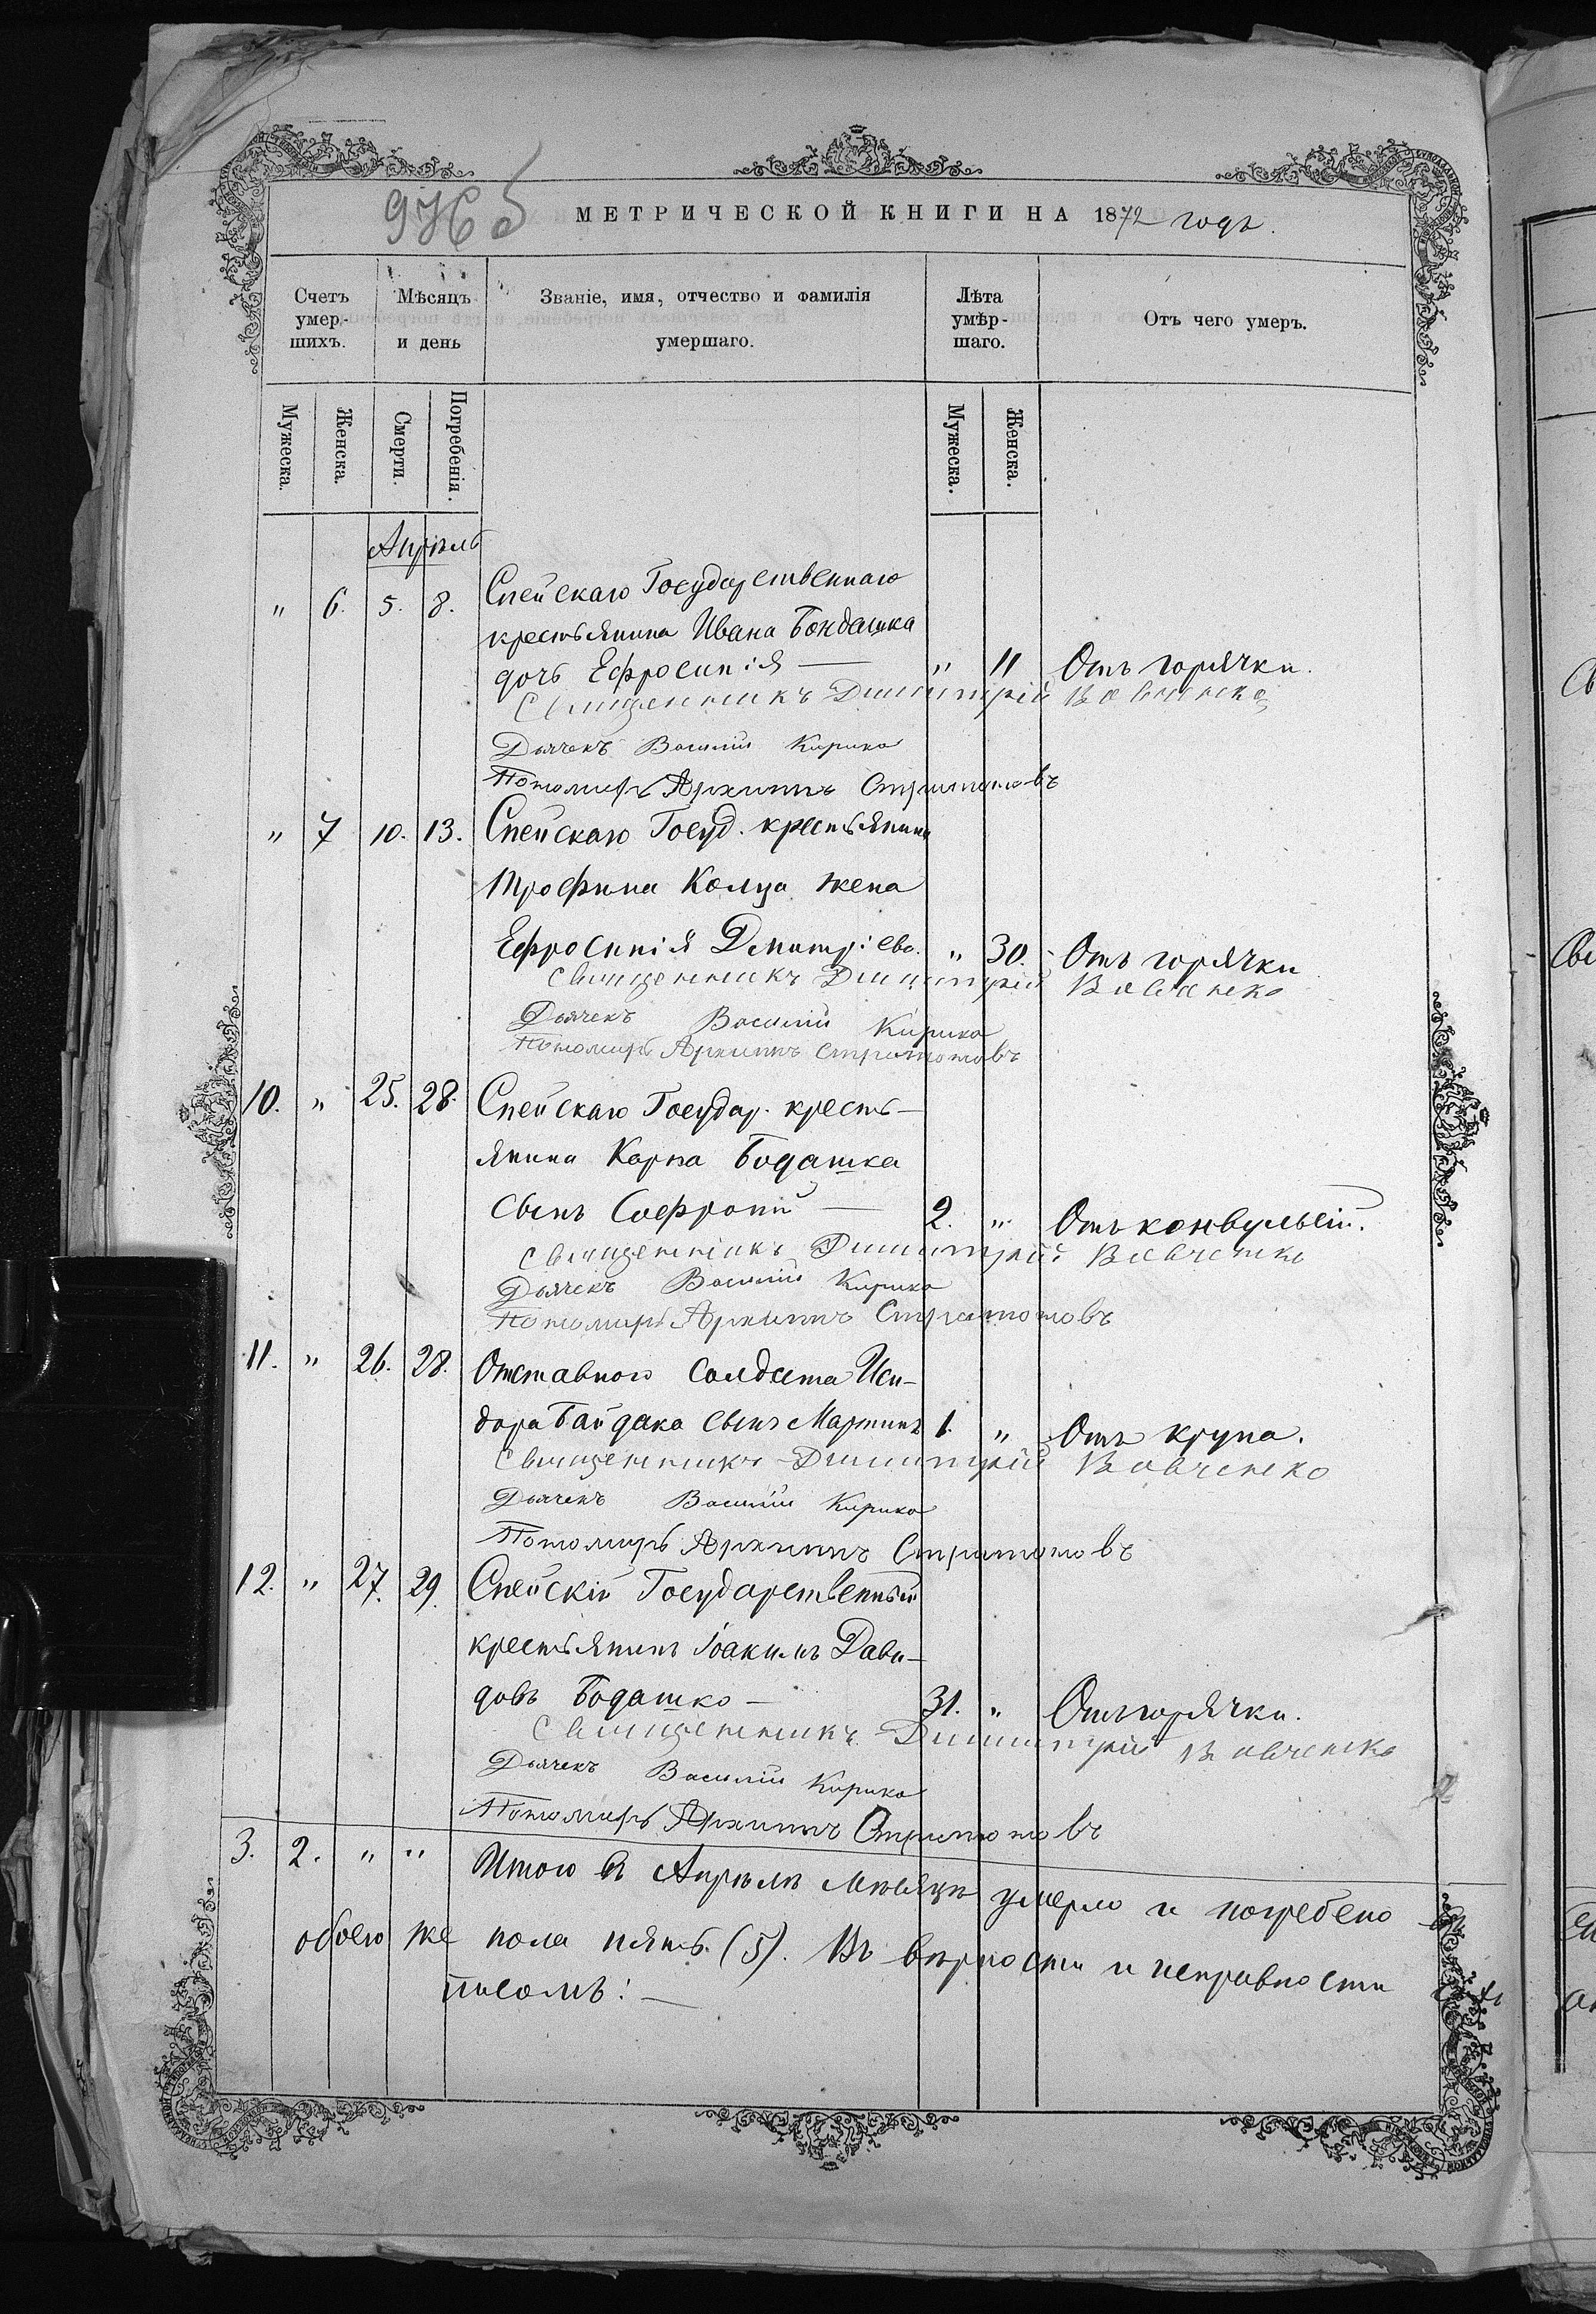 976 б
МЕТРИЧЕСКОЙ КНИГИ НА 1872 годъ.
Счетъ умер-шихъ. Мѣсяцъ и день Званіе, имя, отчество и фамилія умершаго. Лѣта умѣр-шаго. Отъ чего умеръ.
Мужеска. Женска. Смерти. Погребенія. Мужеска. Женска.
Апрѣль
" 6. 5. 8. Спейскаго Государственнаго
крестьянина Ивана Бондашка
дочь Ефросинія — " 11 Отъ горячки.
Священникъ Димитрій Вовченко
Дьячекъ Василій Кирика
Пономарь Архиппъ Стратоновъ
" 7 10. 13. Спейскаго Госуд. крестьянина
Трофима Колца жена
Ефросинія Дмитріева. " 30. Отъ горячки
Священникъ Димитрій Вовченко
Дьячекъ Василій Кирика
Пономарь Архиппъ Стратоновъ
10. " 25. 28. Спейскаго Государ. кресть-
янина Карпа Бодашка
сынъ Софроній — 2. " Отъ конвульсій.
Священникъ Димитрій Вовченко
Дьячекъ Василій Кирика
Пономарь Архиппъ Стратоновъ
11. " 26. 28. Отставного солдата Иси-
дора Байдака сынъ Мартинъ 1. " Отъ крупа.
Священникъ Димитрій Вовченко
Дьячекъ Василій Кирика
Пономарь Архиппъ Стратоновъ
12. " 27. 29. Спейскій Государственный
крестьянинъ Іоакимъ Дави-
довъ Бодашко — 31. " Отъ горячки.
Священникъ Димитрій Вовченко
Дьячекъ Василій Кирика
Пономарь Архиппъ Стратоновъ
3. 2. " " Итого въ Апрѣлѣ мѣсяцѣ умерло и погребено
обоего же пола пять (5). Въ вѣрности и исправности
писомъ: —